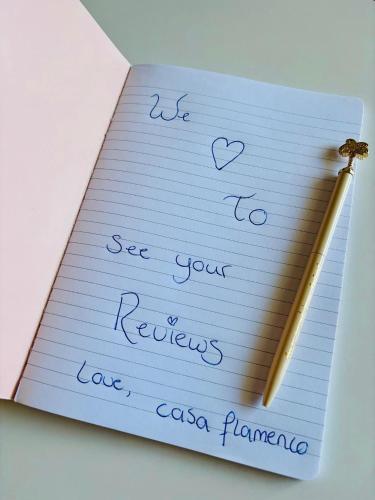 We
♡
To
see your
Reviews
Love,
casa flamenco